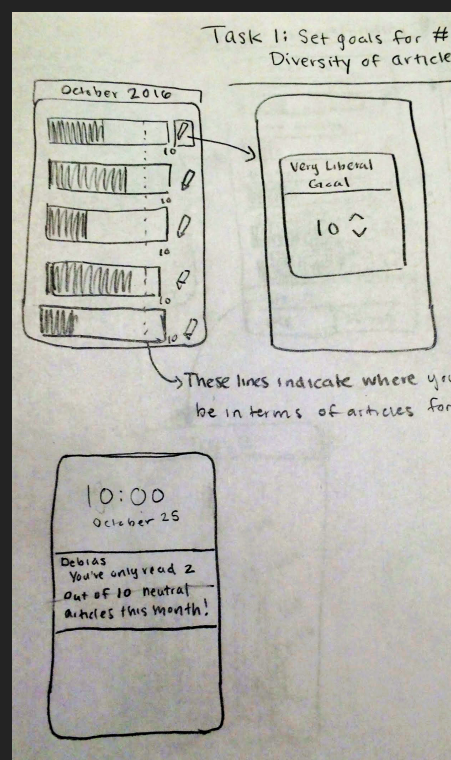 Task 1: Set goals for #
Diversity of article
October 2016
10
10
10
10
10
Very Liberal
Goal
10
These lines indicate where you
be in terms of articles for
10:00
October 25
Debias
You've only read 2
out of 10 neutral
articles this month!